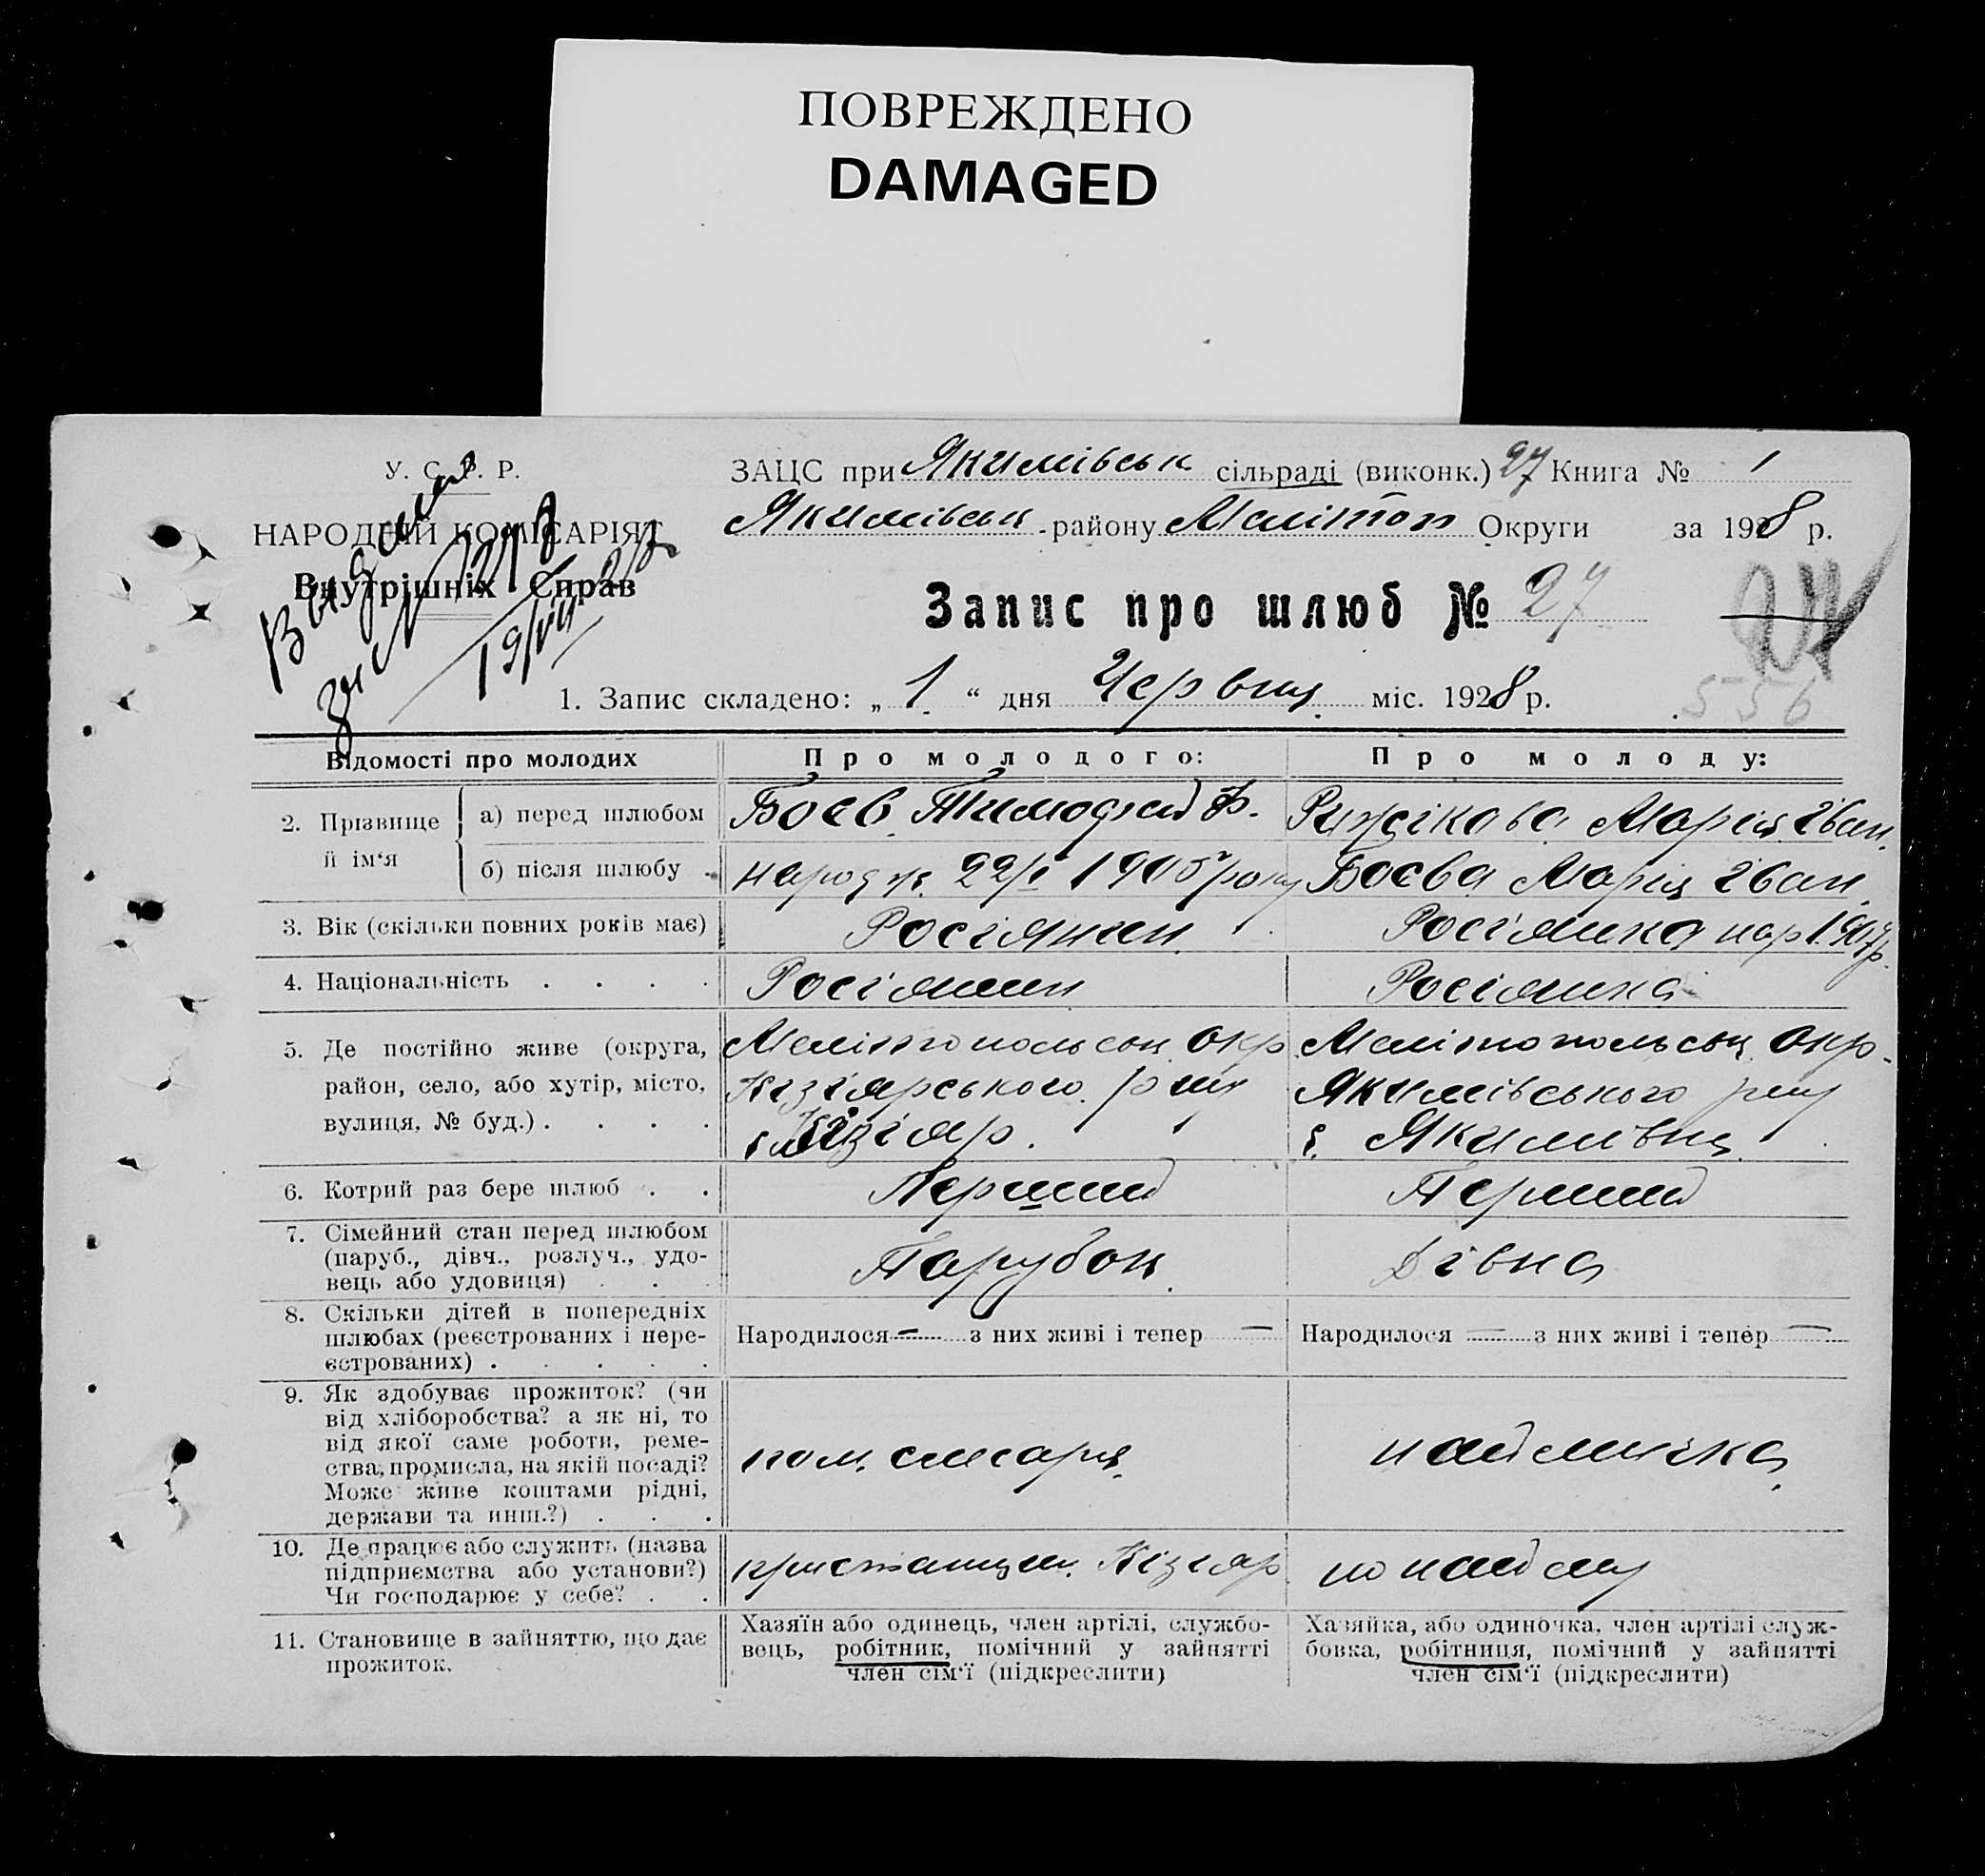 ПОВРЕЖДЕНО
DAMAGED
У. С. Р. Р.
НАРОДНІЙ КОМІСАРІЯТ
Внутрішніх Справ
ЗАЦС при Якимівськ сільраді (виконк.) 27 Книга № 1
Якимівськ району Мелітоп Округи за 1928 р.
Запис про шлюб № 27
556
1. Запис складено: „ 1 “ дня Червня міс. 1928 р.
Відомості про молодих
Про молодого:
Про молоду:
2. Прізвище й ім‘я
а) перед шлюбом
Боєв Тимофей Ф.
Рижікова Марія Іван.
б) після шлюбу
народж. 22/I 1905 року
Боєва Марія Іван
3. Вік (скільки повних років має)
Росіянин
Росіянка нар 1907 р.
4. Національність . . . .
Росіянин
Росіянка
5. Де постійно живе (округа,
район, село, або хутір, місто,
вулиця, № буд.) . . . .
Мелітопольськ окр
Кізіярського р-ну
Кізіяр.
Мелітопольськ окр.
Якимівського р-ну
с. Якимівка
6. Котрий раз бере шлюб . .
Перший
Перший
7. Сімейний стан перед шлюбом
(паруб., дівч., розлуч., удо-
вець або удовиця) . . .
Парубок
Дівка
8. Скільки дітей в попередніх
шлюбах (реєстрованих і пере-
єстрованих) . . . . .
Народилося — з них живі і тепер —
Народилося — з них живі і тепер —
9. Як здобуває прожиток? (чи
від хліборобства? а як ні, то
від якої саме роботи, реме-
ства, промисла, на якій посаді?
Може живе коштами рідні,
держави та инш.?) . . .
пом. слесаря
наймичка
10. Де працює або служить (назва
підприємства або установи?)
Чи господарює у себе? . .
при станции. Кізіяр
по найму
11. Становище в зайняттю, що дає
прожиток.
Хазяїн або одинець, член артілі, службо-
вець, робітник, помічний у зайнятті
член сім‘ї (підкреслити)
Хазяйка, або одиночка, член артілі служ-
бовка, робітниця, помічний у зайнятті
член сім‘ї (підкреслити)